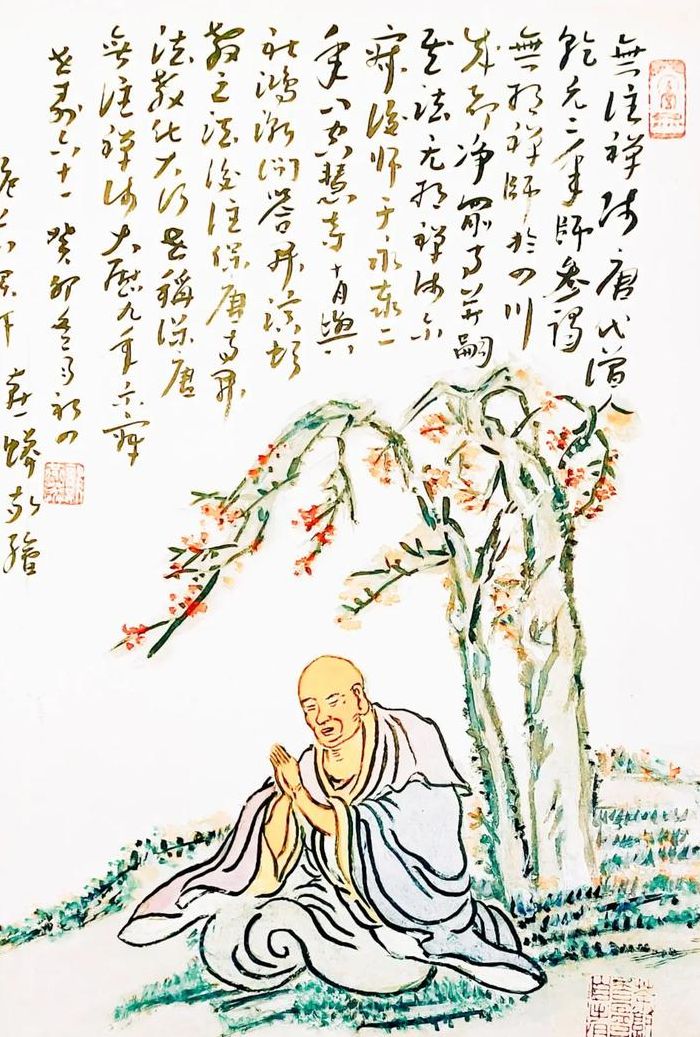 無住禪师唐代僧人
乾元二年師參謁
無相禪師於四川
成都净眾寺并嗣
其法无相禪师示
寂後师于永泰二
年入空慧寺十月與
杜鴻漸問答開演頓
教之法後住保唐寺開
法教化大行世稱保唐
無住禪师大曆九年示寂
世壽六十一癸卯冬月初四
敬繪